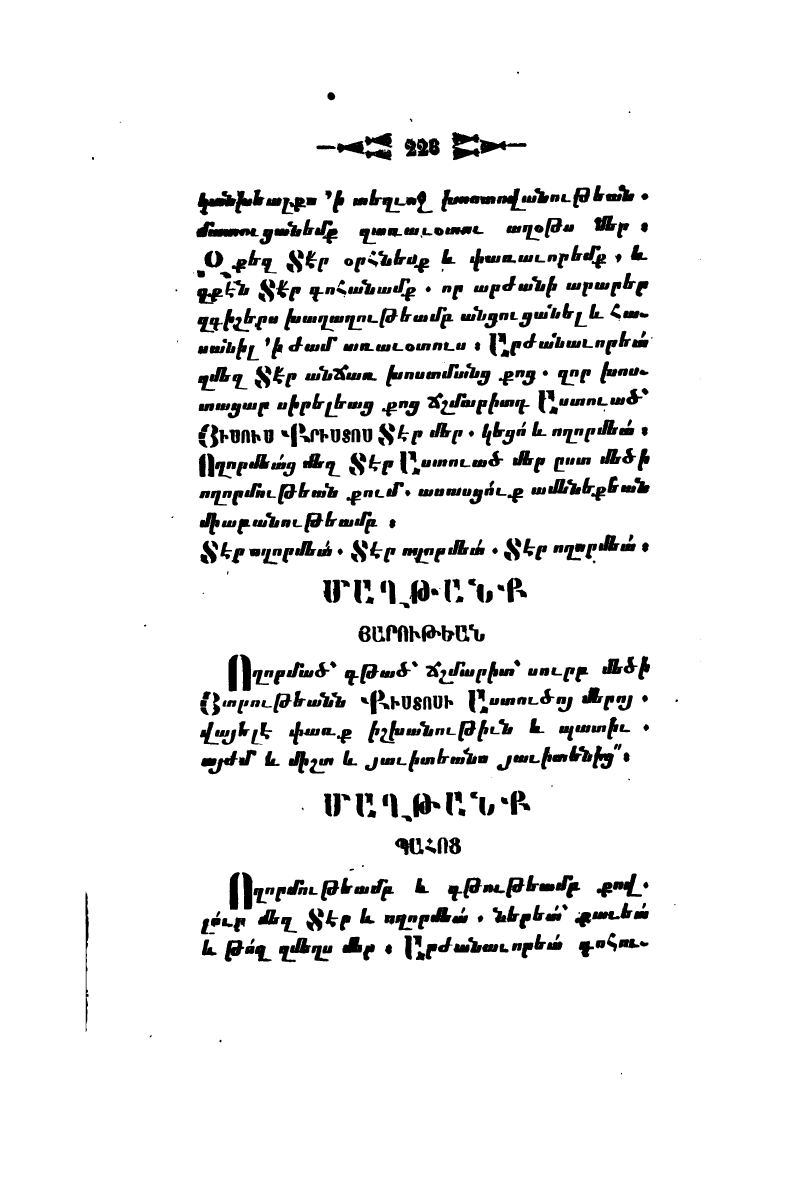 226
կանխեալքս ՚ի տեղւոջ խոստովանութեան .
մատուցանեմք զառաւօտու աղօթս մեր ։
Զքեզ Տէր օրհնեմք և փառաւորեմք , և
զքէն Տէր գոհանամք . որ արժանի արարեր
զգիշերս խաղաղութեամբ անցուցանել և հա֊
սանիլ ՚ի ժամ առաւօտուս ։ Արժանաւորեա՛
զմեզ Տէր անճառ խոստմանց քոց . զոր խոս֊
տացար սիրելեաց քոց ճշմարիտդ Աստուած՝
ՅԻՍՈՒՍ ՔՐԻՍՏՈՍ Տէր մեր . կեցո՛ և ողորմեա՛ ։
Ողորմեա՛ց մեզ Տէր Աստուած մեր ըստ մեծի
ողորմութեան քում . ասասցո՛ւք ամենեքեան
միաբանութեամբ ։
Տէր ողորմեա՛ . Տէր ողորմեա՛ . Տէր ողորմեա՛ ։
ՄԱՂԹԱՆՔ
ՅԱՐՈՒԹԵԱՆ
Ողորմած՝ գթած՝ ճշմարիտ՝ սուրբ մեծի
Յարութեանն ՔՐԻՍՏՈՍԻ Աստուծոյ մերոյ .
վայելէ փառք իշխանութիւն և պատիւ .
այժմ և միշտ և յաւիտեանս յաւիտենից ։
ՄԱՂԹԱՆՔ
ՊԱՀՈՑ
Ողորմութեամբ և գթութեամբ քով .
լո՛ւր մեզ Տէր և ողորմեա՛ . ներեա՛՝ քաւեա՛
և թո՛ղ զմեղս մեր ։ Արժանաւորեա՛ գոհու֊